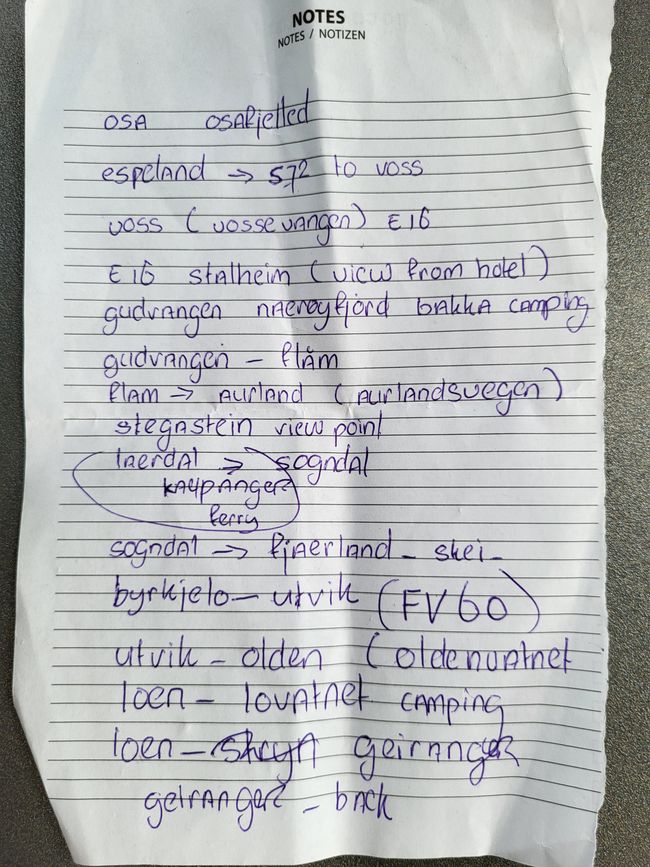 NOTES
NOTES / NOTIZEN
OSA OSAfjelled
espeland → 572 to voss
voss (vossevangen) E16
E16 stalheim (view from hotel)
gudvangen naerøyfjord bakka camping
gudvangen - flåm
flam → aurland (aurlandsvegen)
stegastein view point
laerdal → sogndal
kaupanger
ferry
sogndal → fjaerland - skei -
byrkjelo - utvik (FV60)
utvik - olden (oldenvatnet
loen - lovatnet camping
loen - stryn geiranger
geiranger - back